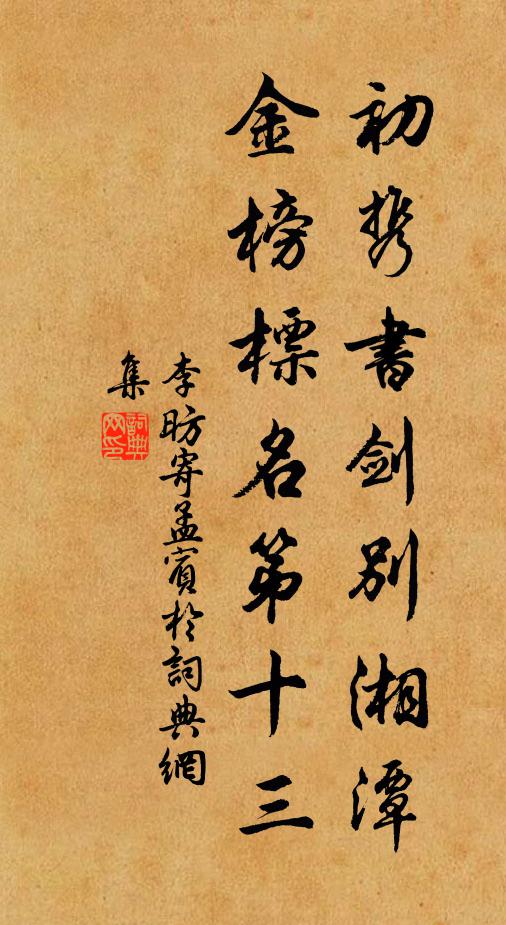 初携書劍別湘潭
金榜標名第十三
李昉寄孟賓於詞典網
集
詞典网印